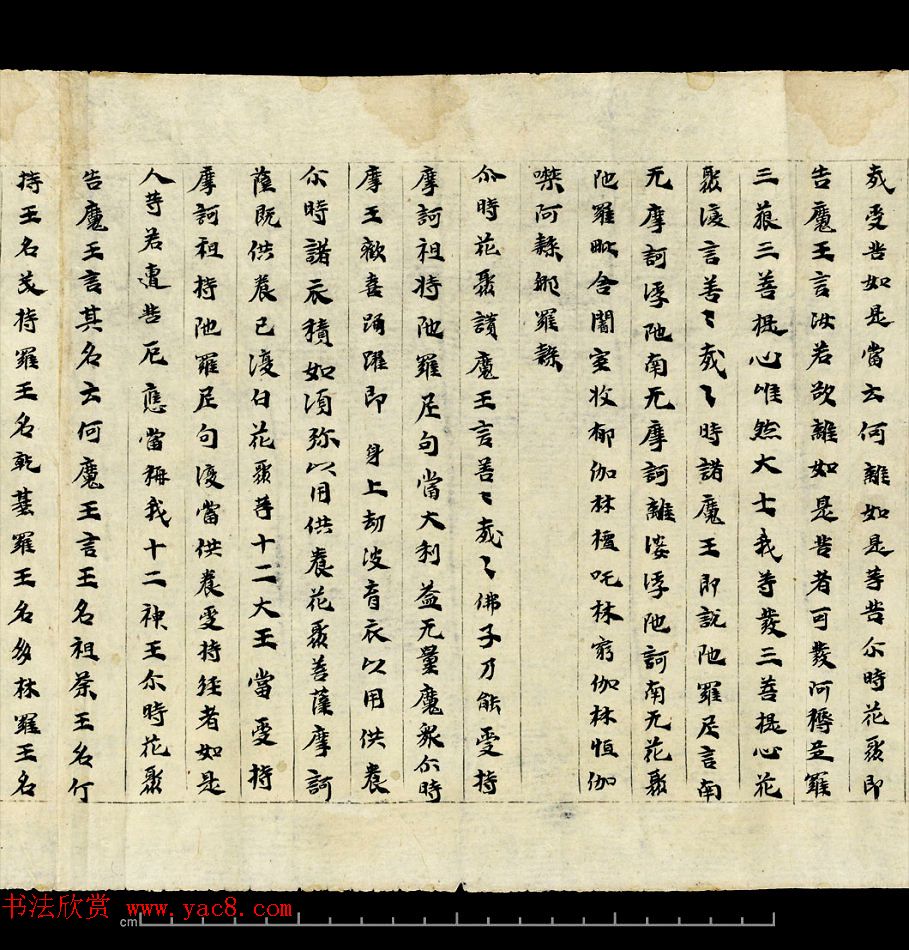 哉受苦如是當云何離如是等苦尒時花聚即
告魔王言汝若欲離如是苦者可發阿耨三羅
三藐三善提心唯然大士我等發三善提心花
聚復言善〻哉〻時諸魔王即說陁羅尼言南
无摩訶浮陁南无摩訶離婆浮陁訶南无花聚
陁羅毗舍闍室收郁伽林檀吒林窮伽林恒伽
噤阿隸那羅隸
尒時花聚讃魔王言善〻哉〻佛子乃能受持
摩訶祖持陁羅尼句當大利益无量魔衆尒時
摩王歡喜踊躍即身上劫波育衣以用供養
尒時諸衣積如須弥以用供養花聚善薩摩訶
薩既供養已復白花聚等十二大王當受持
摩訶祖持陁羅尼句復當供養受持經者如是
人等若遭苦厄應當稱我十二神王尒時花聚
告魔王言其名云何魔王言王名祖荼王名行
持王名茂持羅王名乾基羅王名多林羅王名
書法欣赏 www.yac8.com
cm